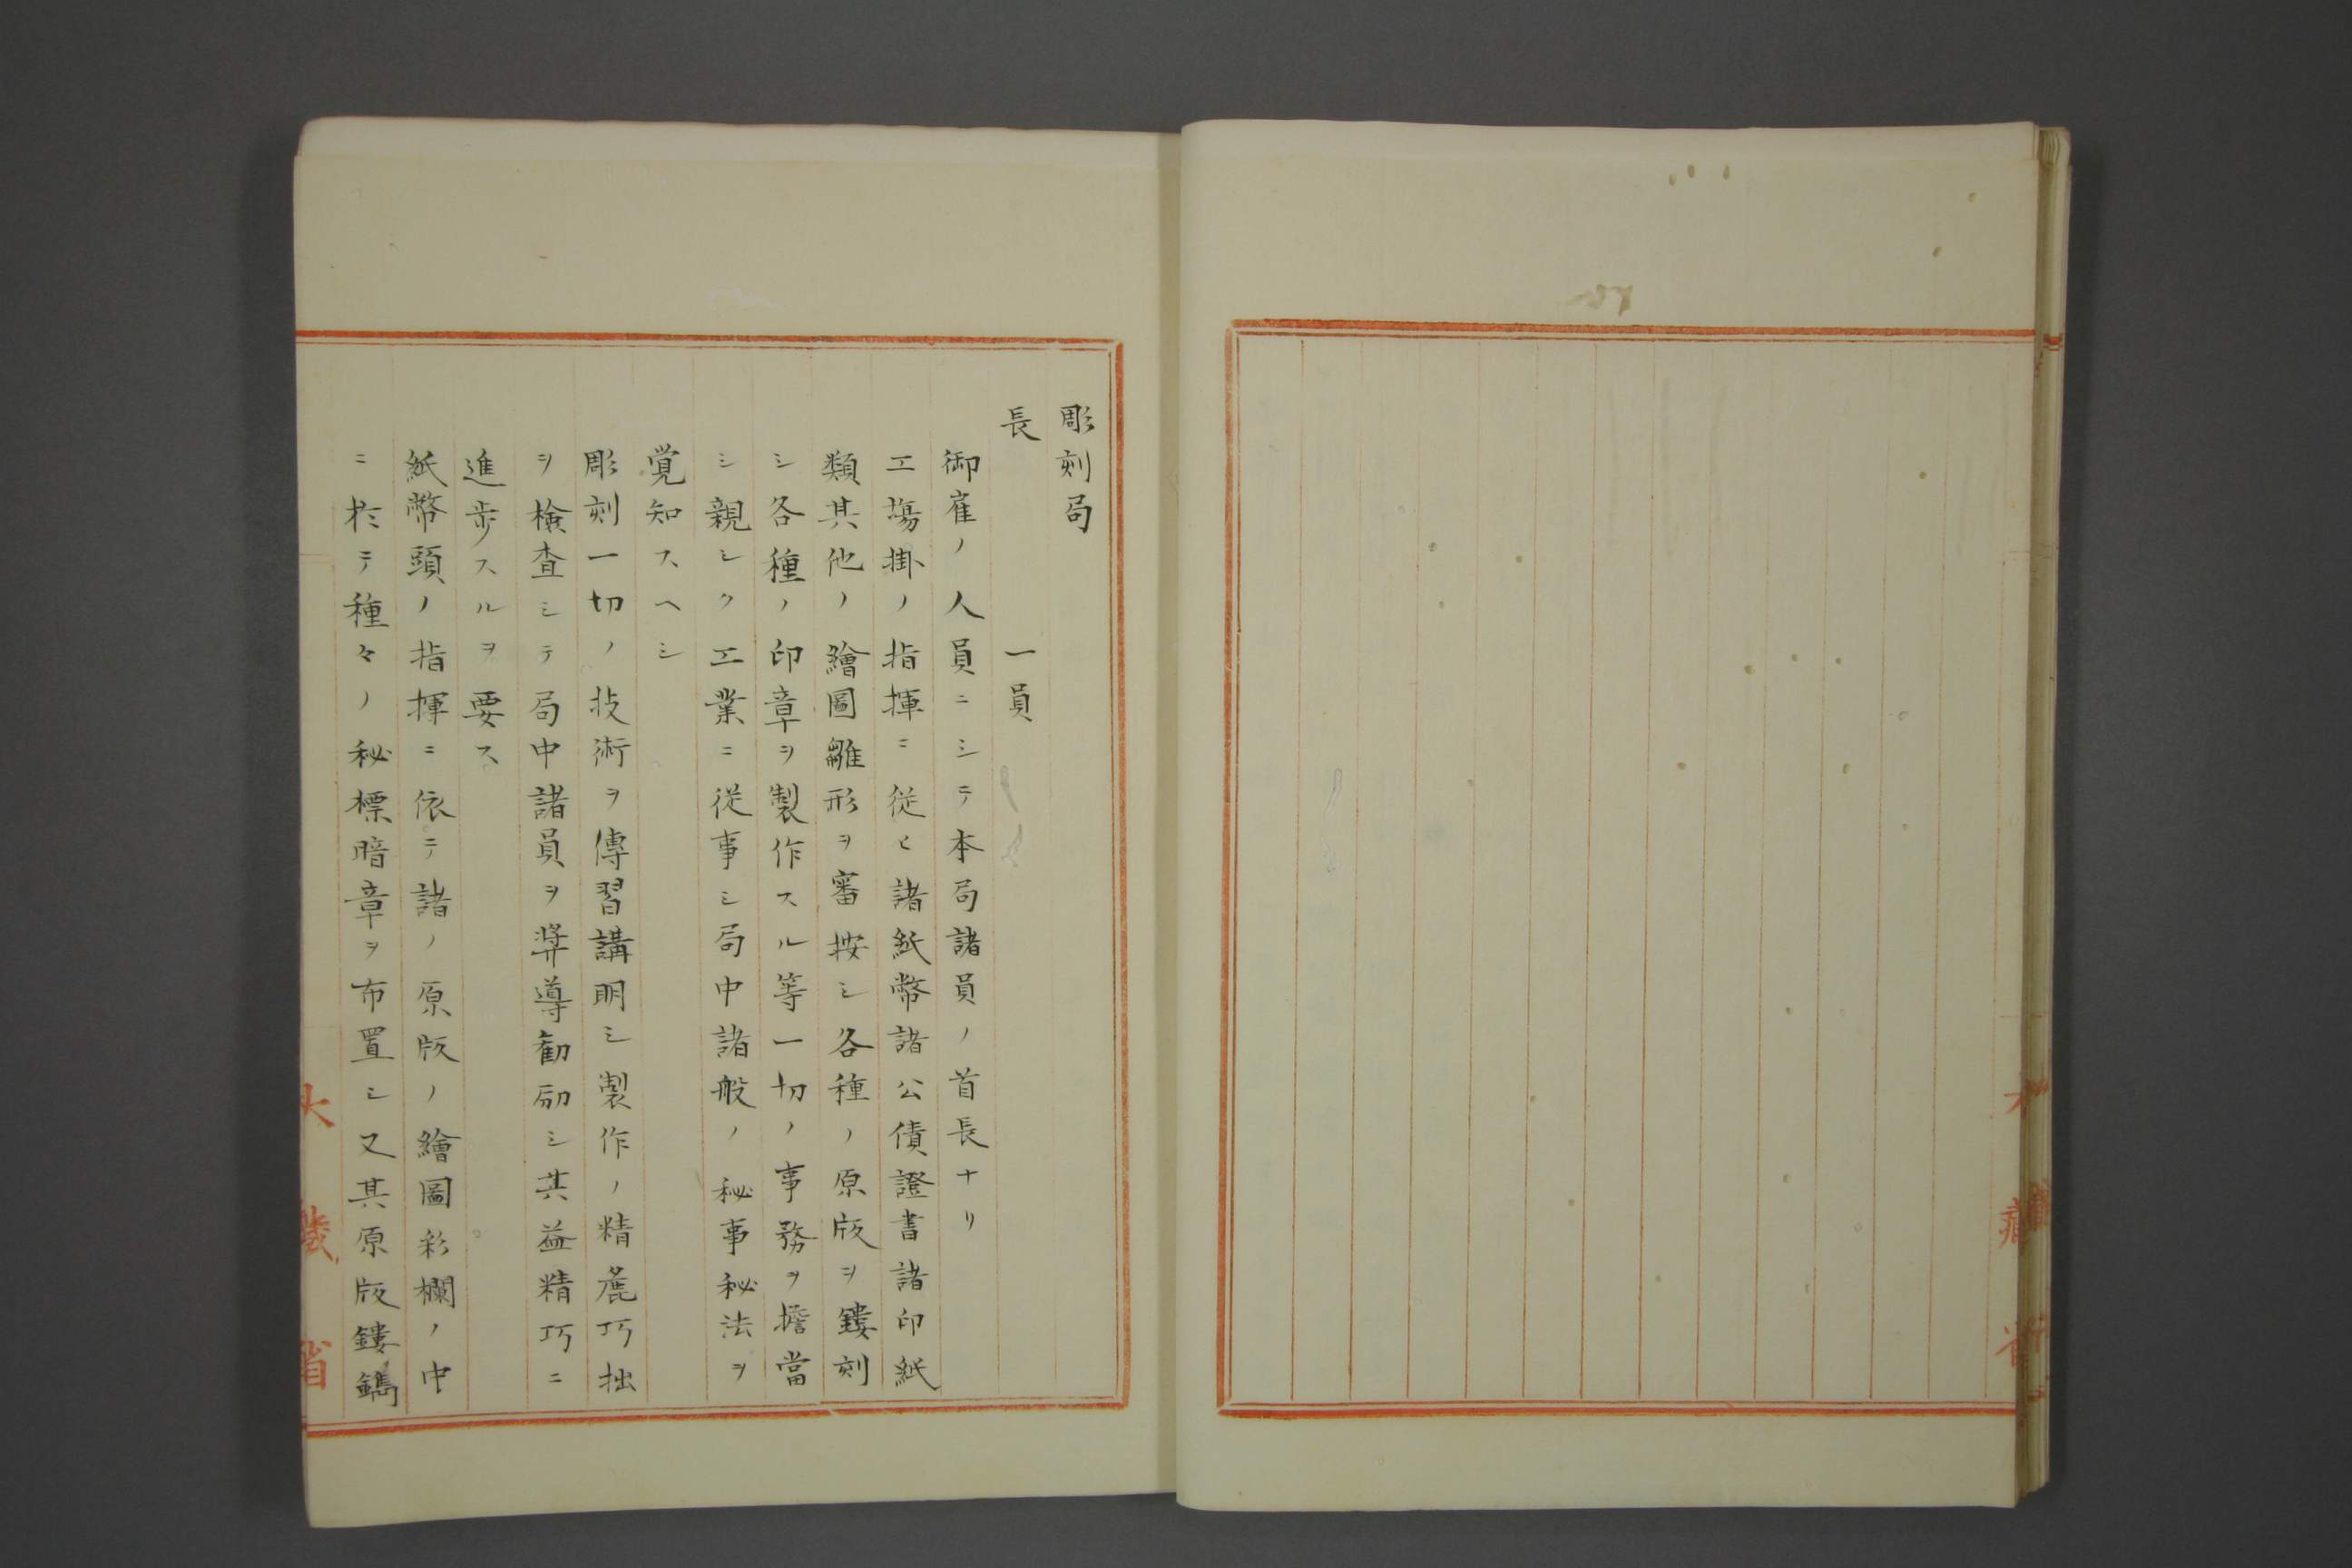 彫刻局
長　　　　一員
御雇ノ人員ニシテ本局諸員ノ首長ナリ
工場掛ノ指揮ニ從ヒ諸紙幣諸公債證書諸印紙
類其他ノ繪圖雛形ヲ審按シ各種ノ原版ヲ鏤刻
シ各種ノ印章ヲ製作スル等一切ノ事務ヲ擔當
シ親シク工業ニ從事シ局中諸般ノ秘事秘法ヲ
覚知スヘシ
彫刻一切ノ技術ヲ傳習講明シ製作ノ精麁巧拙
ヲ檢査シテ局中諸員ヲ奨導勸励シ其益精巧ニ
進歩スルヲ要ス
紙幣頭ノ指揮ニ依テ諸ノ原版ノ繪圖彩欄ノ中
ニ於テ種々ノ秘標暗章ヲ布置シ又其原版鏤鐫
大藏省